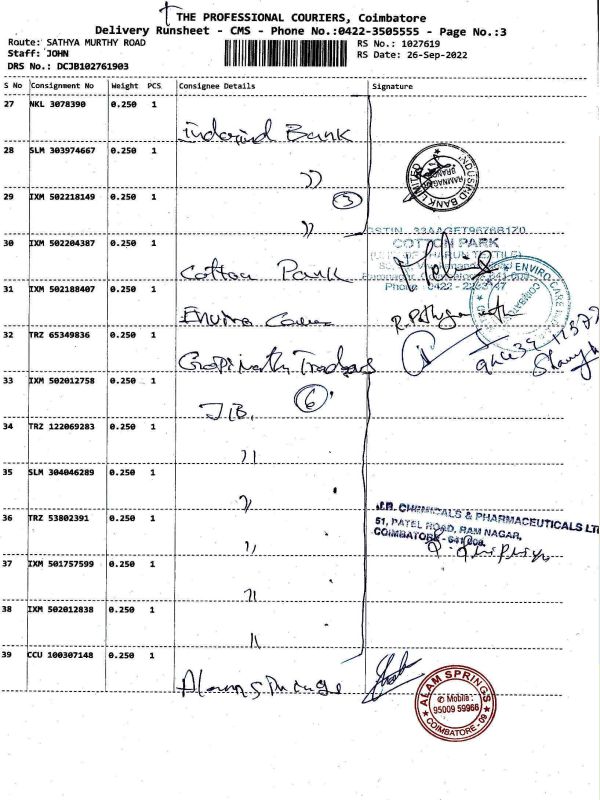 THE PROFESSIONAL COURIERS, Coimbatore
Delivery Runsheet - CMS - Phone No.:0422-3505555 - Page No.:3
Route: SATHYA MURTHY ROAD RS No.: 1027619
Staff: JOHN RS Date: 26-Sep-2022
DRS No.: DCJB102761903
S No Consignment No Weight PCS Consignee Details Signature
27 NKL 3078390 0.250 1
Indusind Bank
28 SLM 303974667 0.250 1
INDUSIND BANK LIMITED
RAMNAGAR
BRANCH
29 IXM 502218149 0.250 1
3
30 IXM 502204387 0.250 1
COTTON PARK
Cotton Park
31 IXM 502188407 0.250 1
Phone : 0422 -
ENVIRO CARE
32 TRZ 65349836 0.250 1
Gopinath Traders
33 IXM 502012758 0.250 1
J.B. 6
34 TRZ 122069283 0.250 1
35 SLM 304046289 0.250 1
36 TRZ 53802391 0.250 1
J.B. CHEMICALS & PHARMACEUTICALS LT
51, PATEL ROAD, RAM NAGAR,
COIMBATORE - 641 009.
37 IXM 501757599 0.250 1
38 IXM 502012838 0.250 1
39 CCU 100307148 0.250 1
Alam Springs
ALAM SPRINGS
Mobile :
95009 59966
COIMBATORE - 09